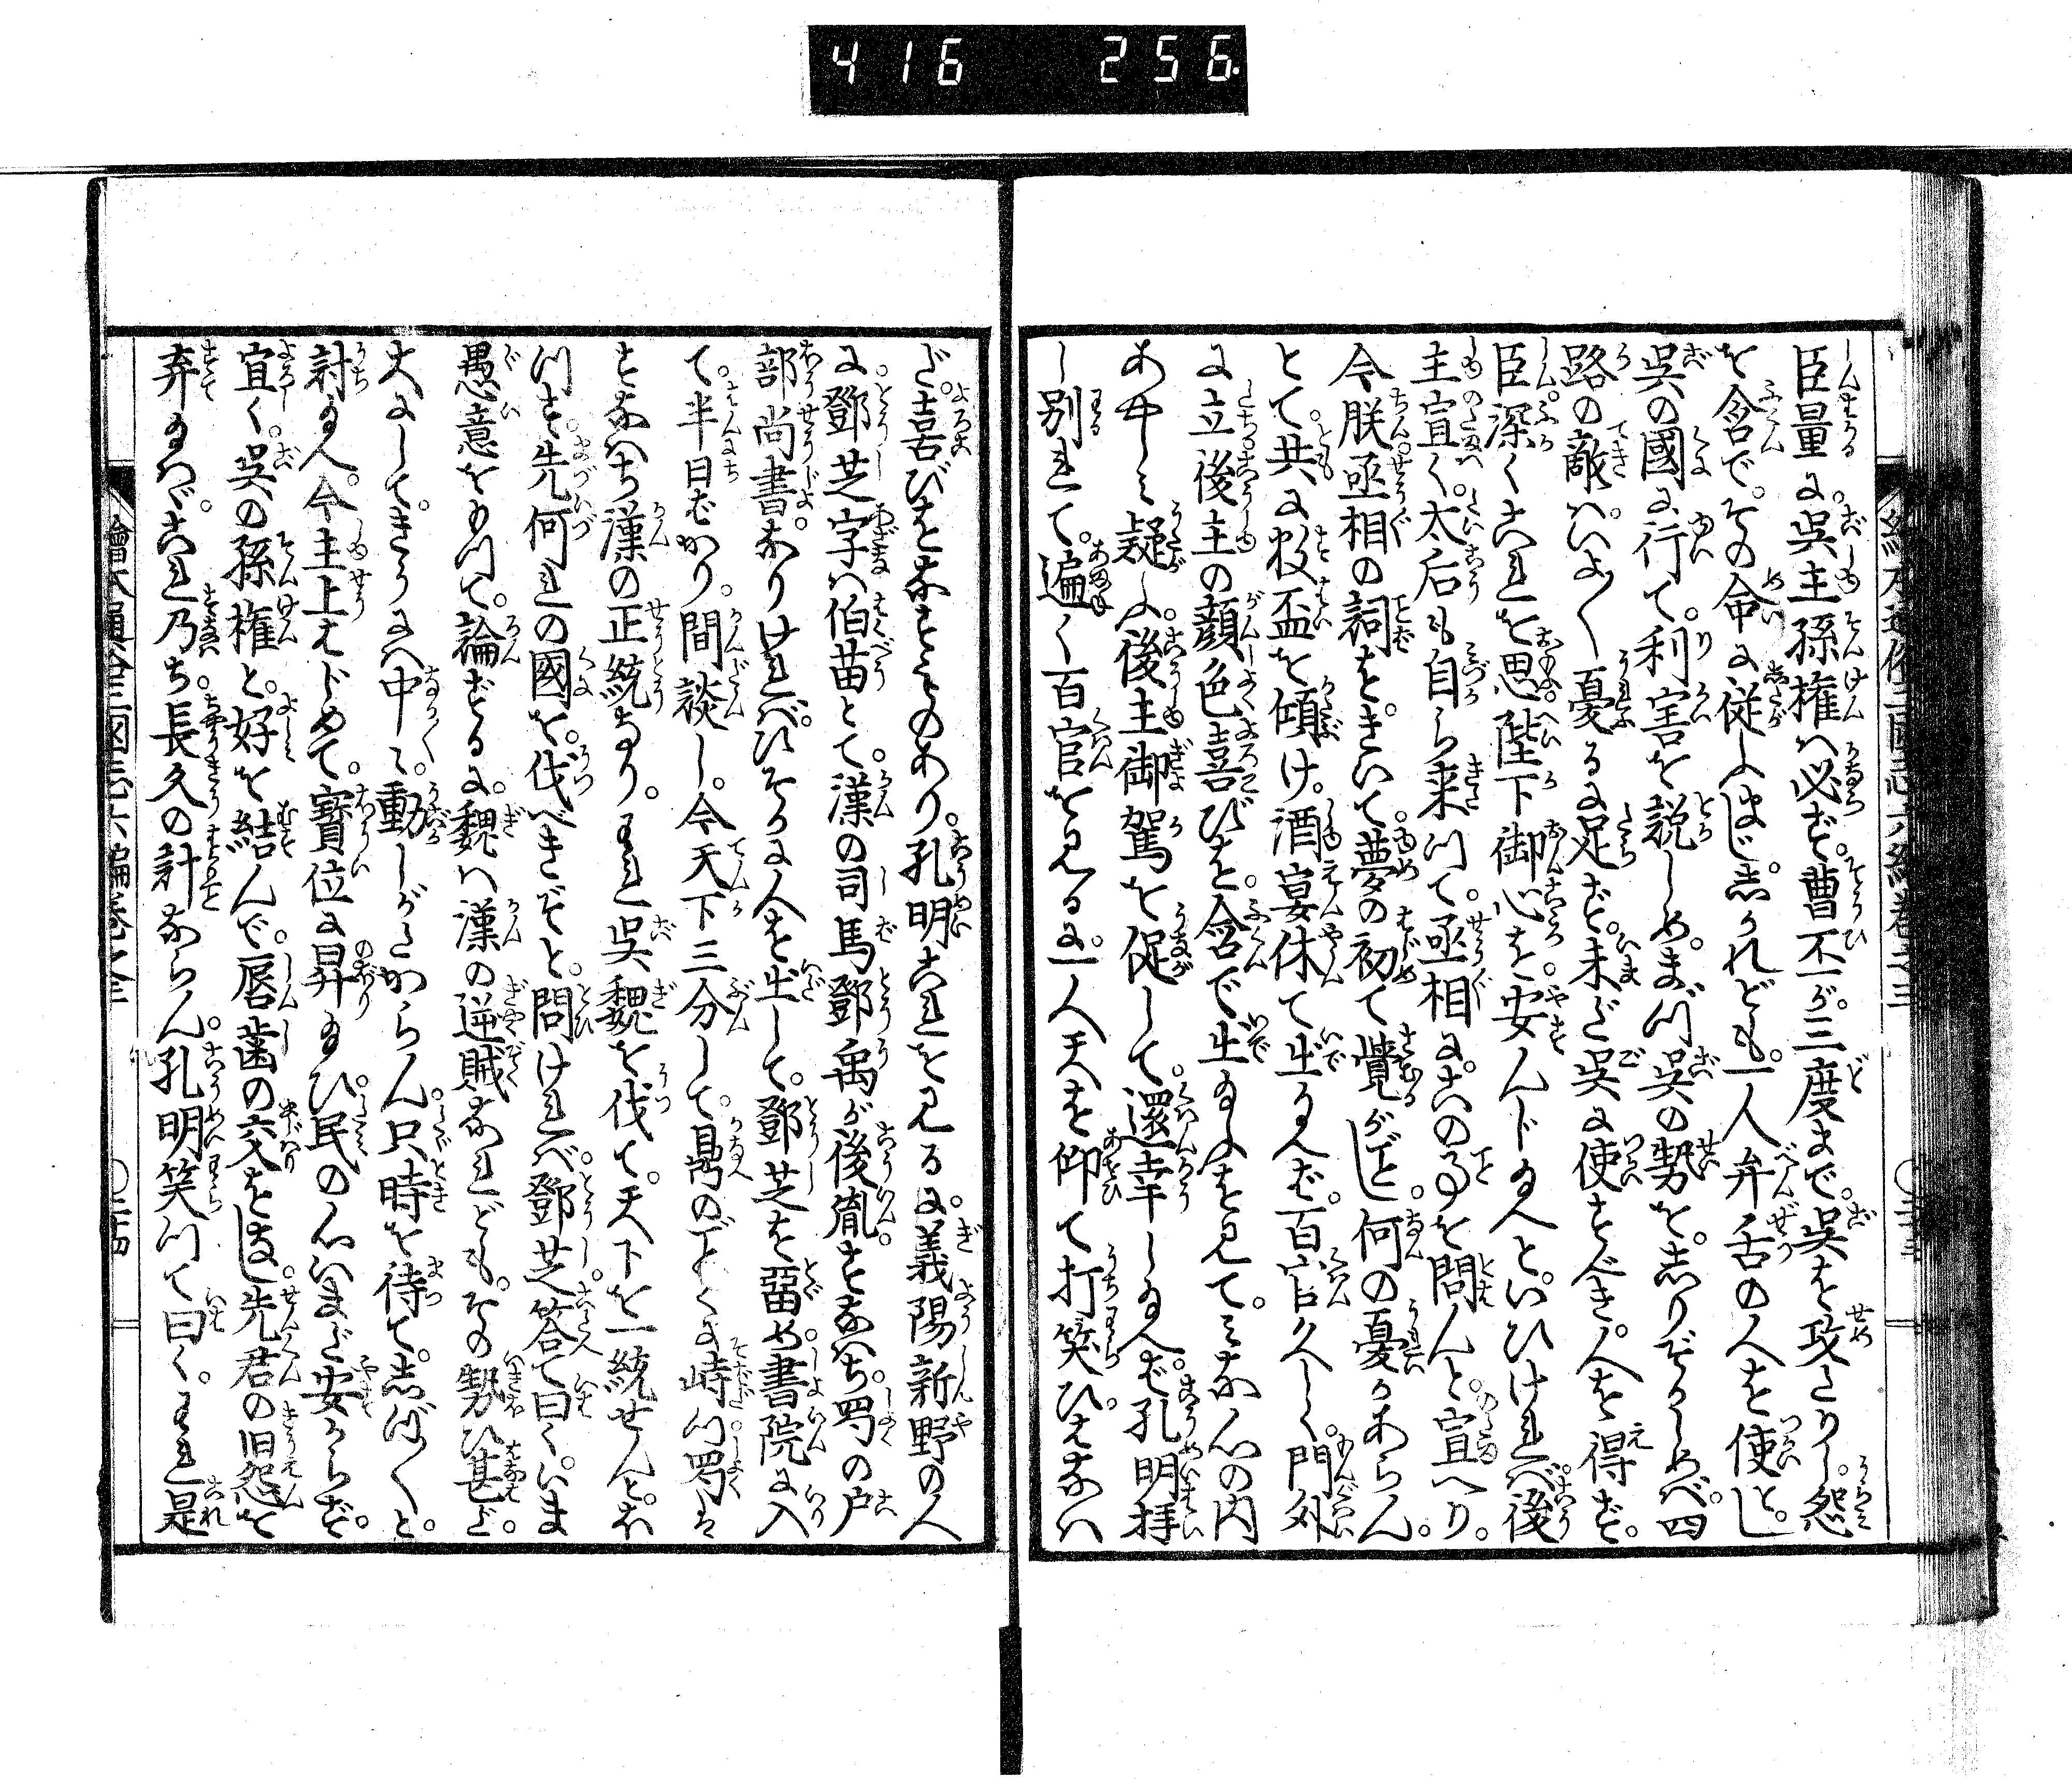 416 256
臣量に。呉主孫権ハ必ず。曹丕が。三度まで。呉を攻さりし。怨
を含で。その命に従ふまじ。しかれども。一人弁舌の人を使とし
呉の國に行て。利害を説しめ。まづ呉の勢を。しりぞかしめバ。四
路の敵ハ。いよ〳〵憂るに足ず。未だ呉に使すべき。人を得ず。
臣深くこれを思。陛下御心を。安んじ玉へといひけれバ。後
主宣く。太后も自ら来つて。丞相にこの事を問んと。宣へり。
今朕丞相の詞をきいて。夢の初て覚がごとし。何の憂かあらん。
とて。共に数盃を傾け。酒宴休て出玉へば。百官久しく。門外
に立。後主の顔色喜びを。含で出玉ふを見て。みな心の内
あやしみ疑ふ。後主御駕を促して。還幸し玉へば。孔明拝
し別れて。遍く百官を見るに。一人天を仰て打笑ひ。はなハ
だ。喜びをなすものあり。孔明これを見るに。義陽新野の人
に。鄧芝字ハ伯苗とて。漢の司馬鄧禹が後胤。すなハち。蜀の戸
部尚書。なりけれバ。ひそかに人を出して。鄧芝を畄め。書院に入
て。半日ばかり。間談し。今天下三分して。鼎のごとくに峙つ。蜀は
すなハち漢の正統なり。われ呉魏を伐て。天下を一統せんとす。
まづ先何れの國を。伐べきぞと。問けれバ。鄧芝答て曰く。いま
愚意をもつて。論ずるに。魏ハ漢の逆賊なれども。その勢ひ甚だ。
大にして。きうにハ中々。動しがたからん。只時を待て。しづ〳〵と。
討玉へ。今主上はじめて。寳位に昇玉ひ。民の心いまだ安からず。
宜く。呉の孫権と。好を結んで。唇歯の交をなし。先君の旧怨を
弃玉ハゞ。これ乃ち。長久の計ならん。孔明笑つて曰く。われ是